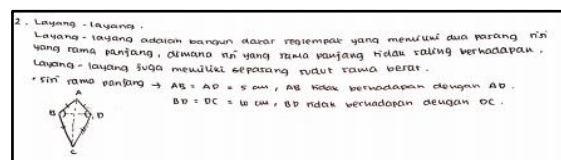 2. Layang - layang.
Layang - layang adalah bangun datar segiempat yang memiliki dua pasang sisi
yang sama panjang, dimana sisi yang sama panjang tidak saling berhadapan.
Layang - layang juga memiliki sepasang sudut sama besar.
• sisi sama panjang → AB = AD = 5 cm, AB tidak berhadapan dengan AD.
BD = DC = 10 cm, BD tidak berhadapan dengan DC.
A
B
D
C